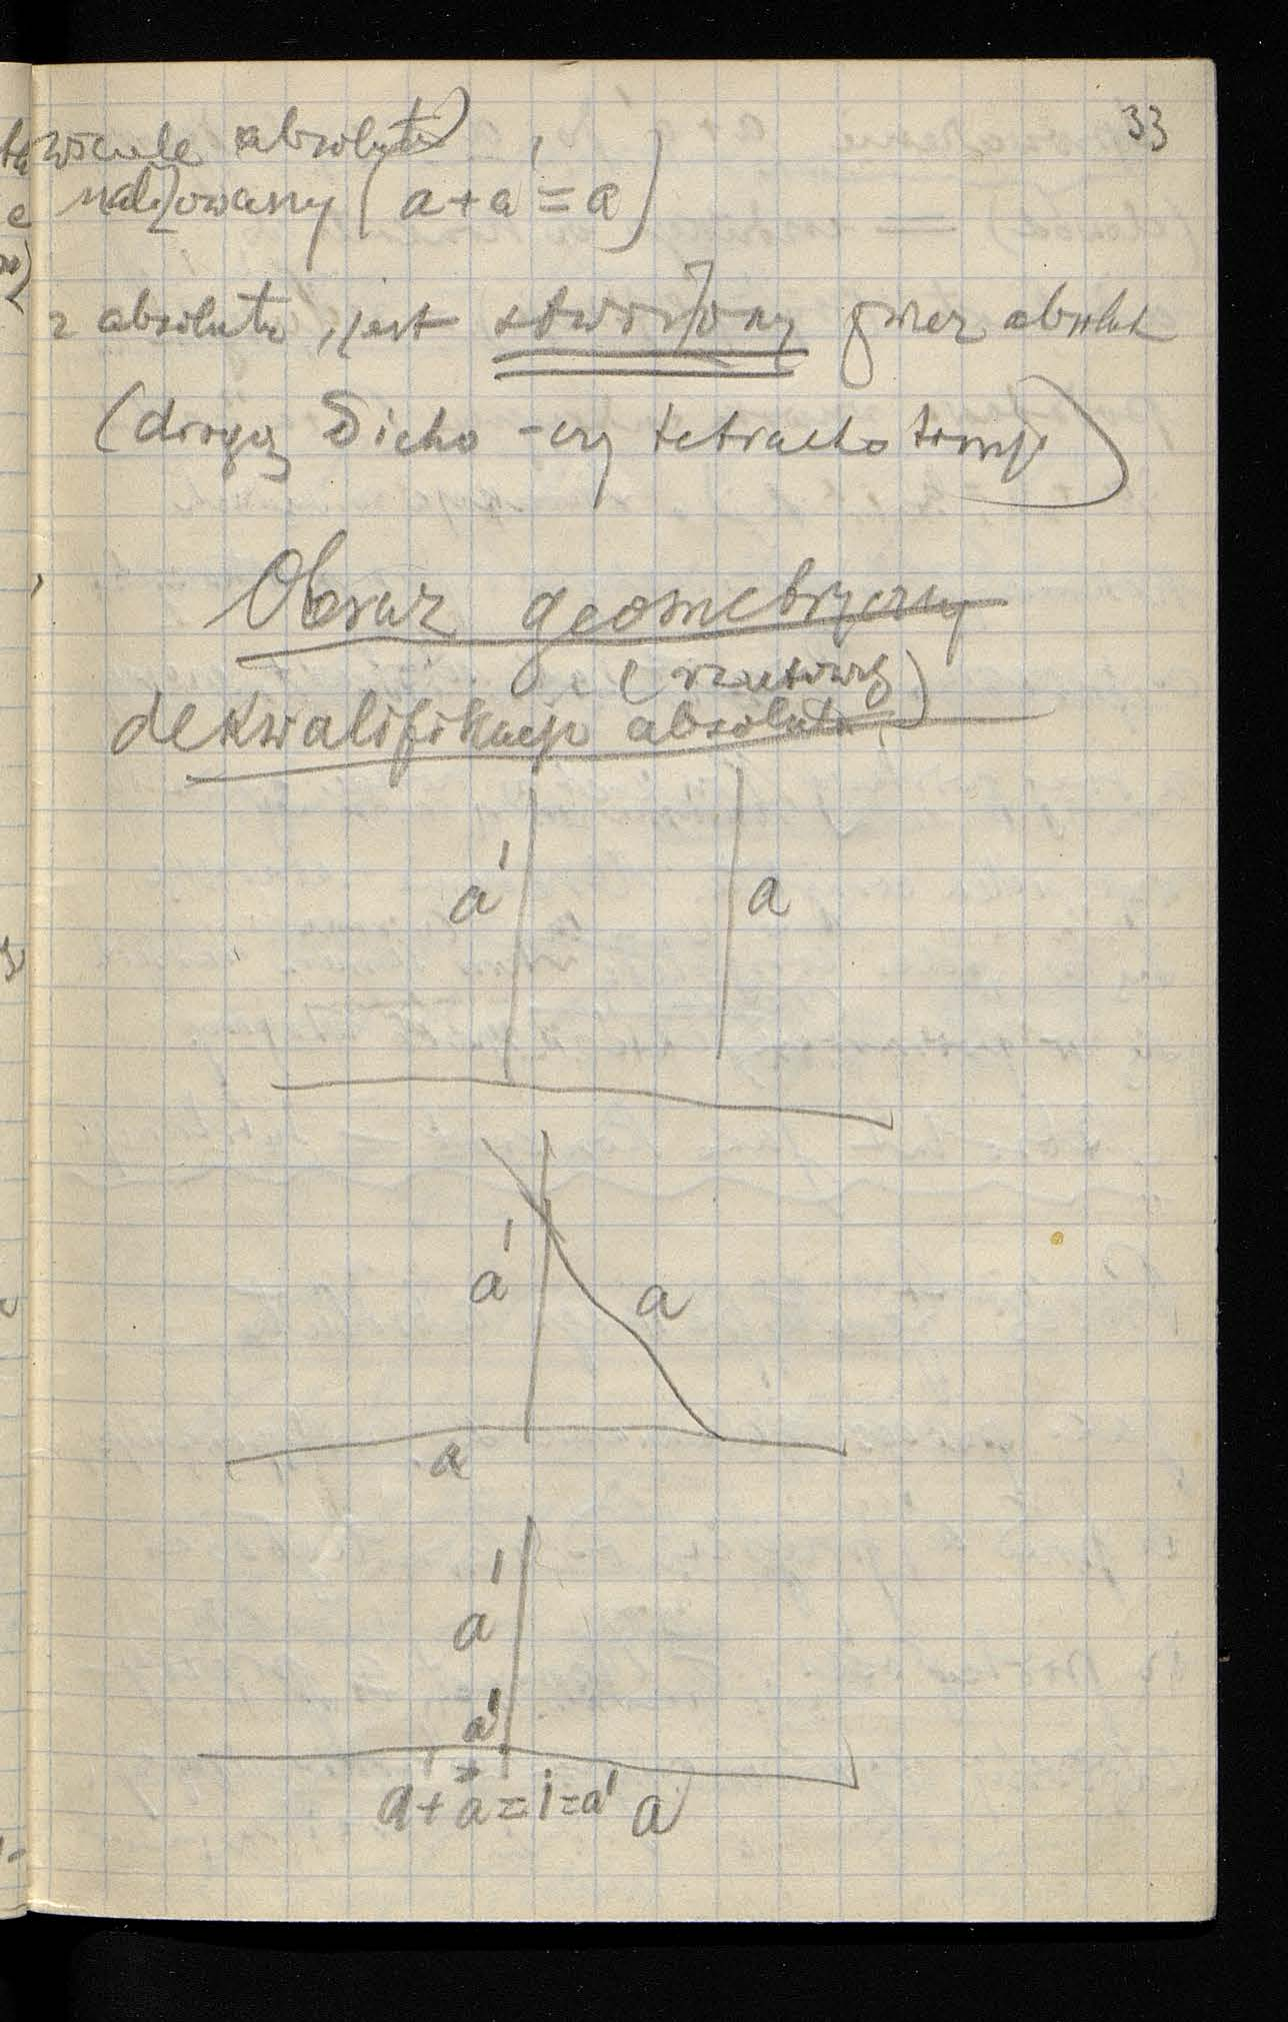 33
absolutu)
(a + a' = a)
z absolutu, jest stworzony przez absolut
(drogą Dicho - czy tetrachotomji)
Obraz geometryczny
(rzutowy)
dekwalifikacji absolutu
a' a
a' a
a
a'
a'
a + a' = i = a' a